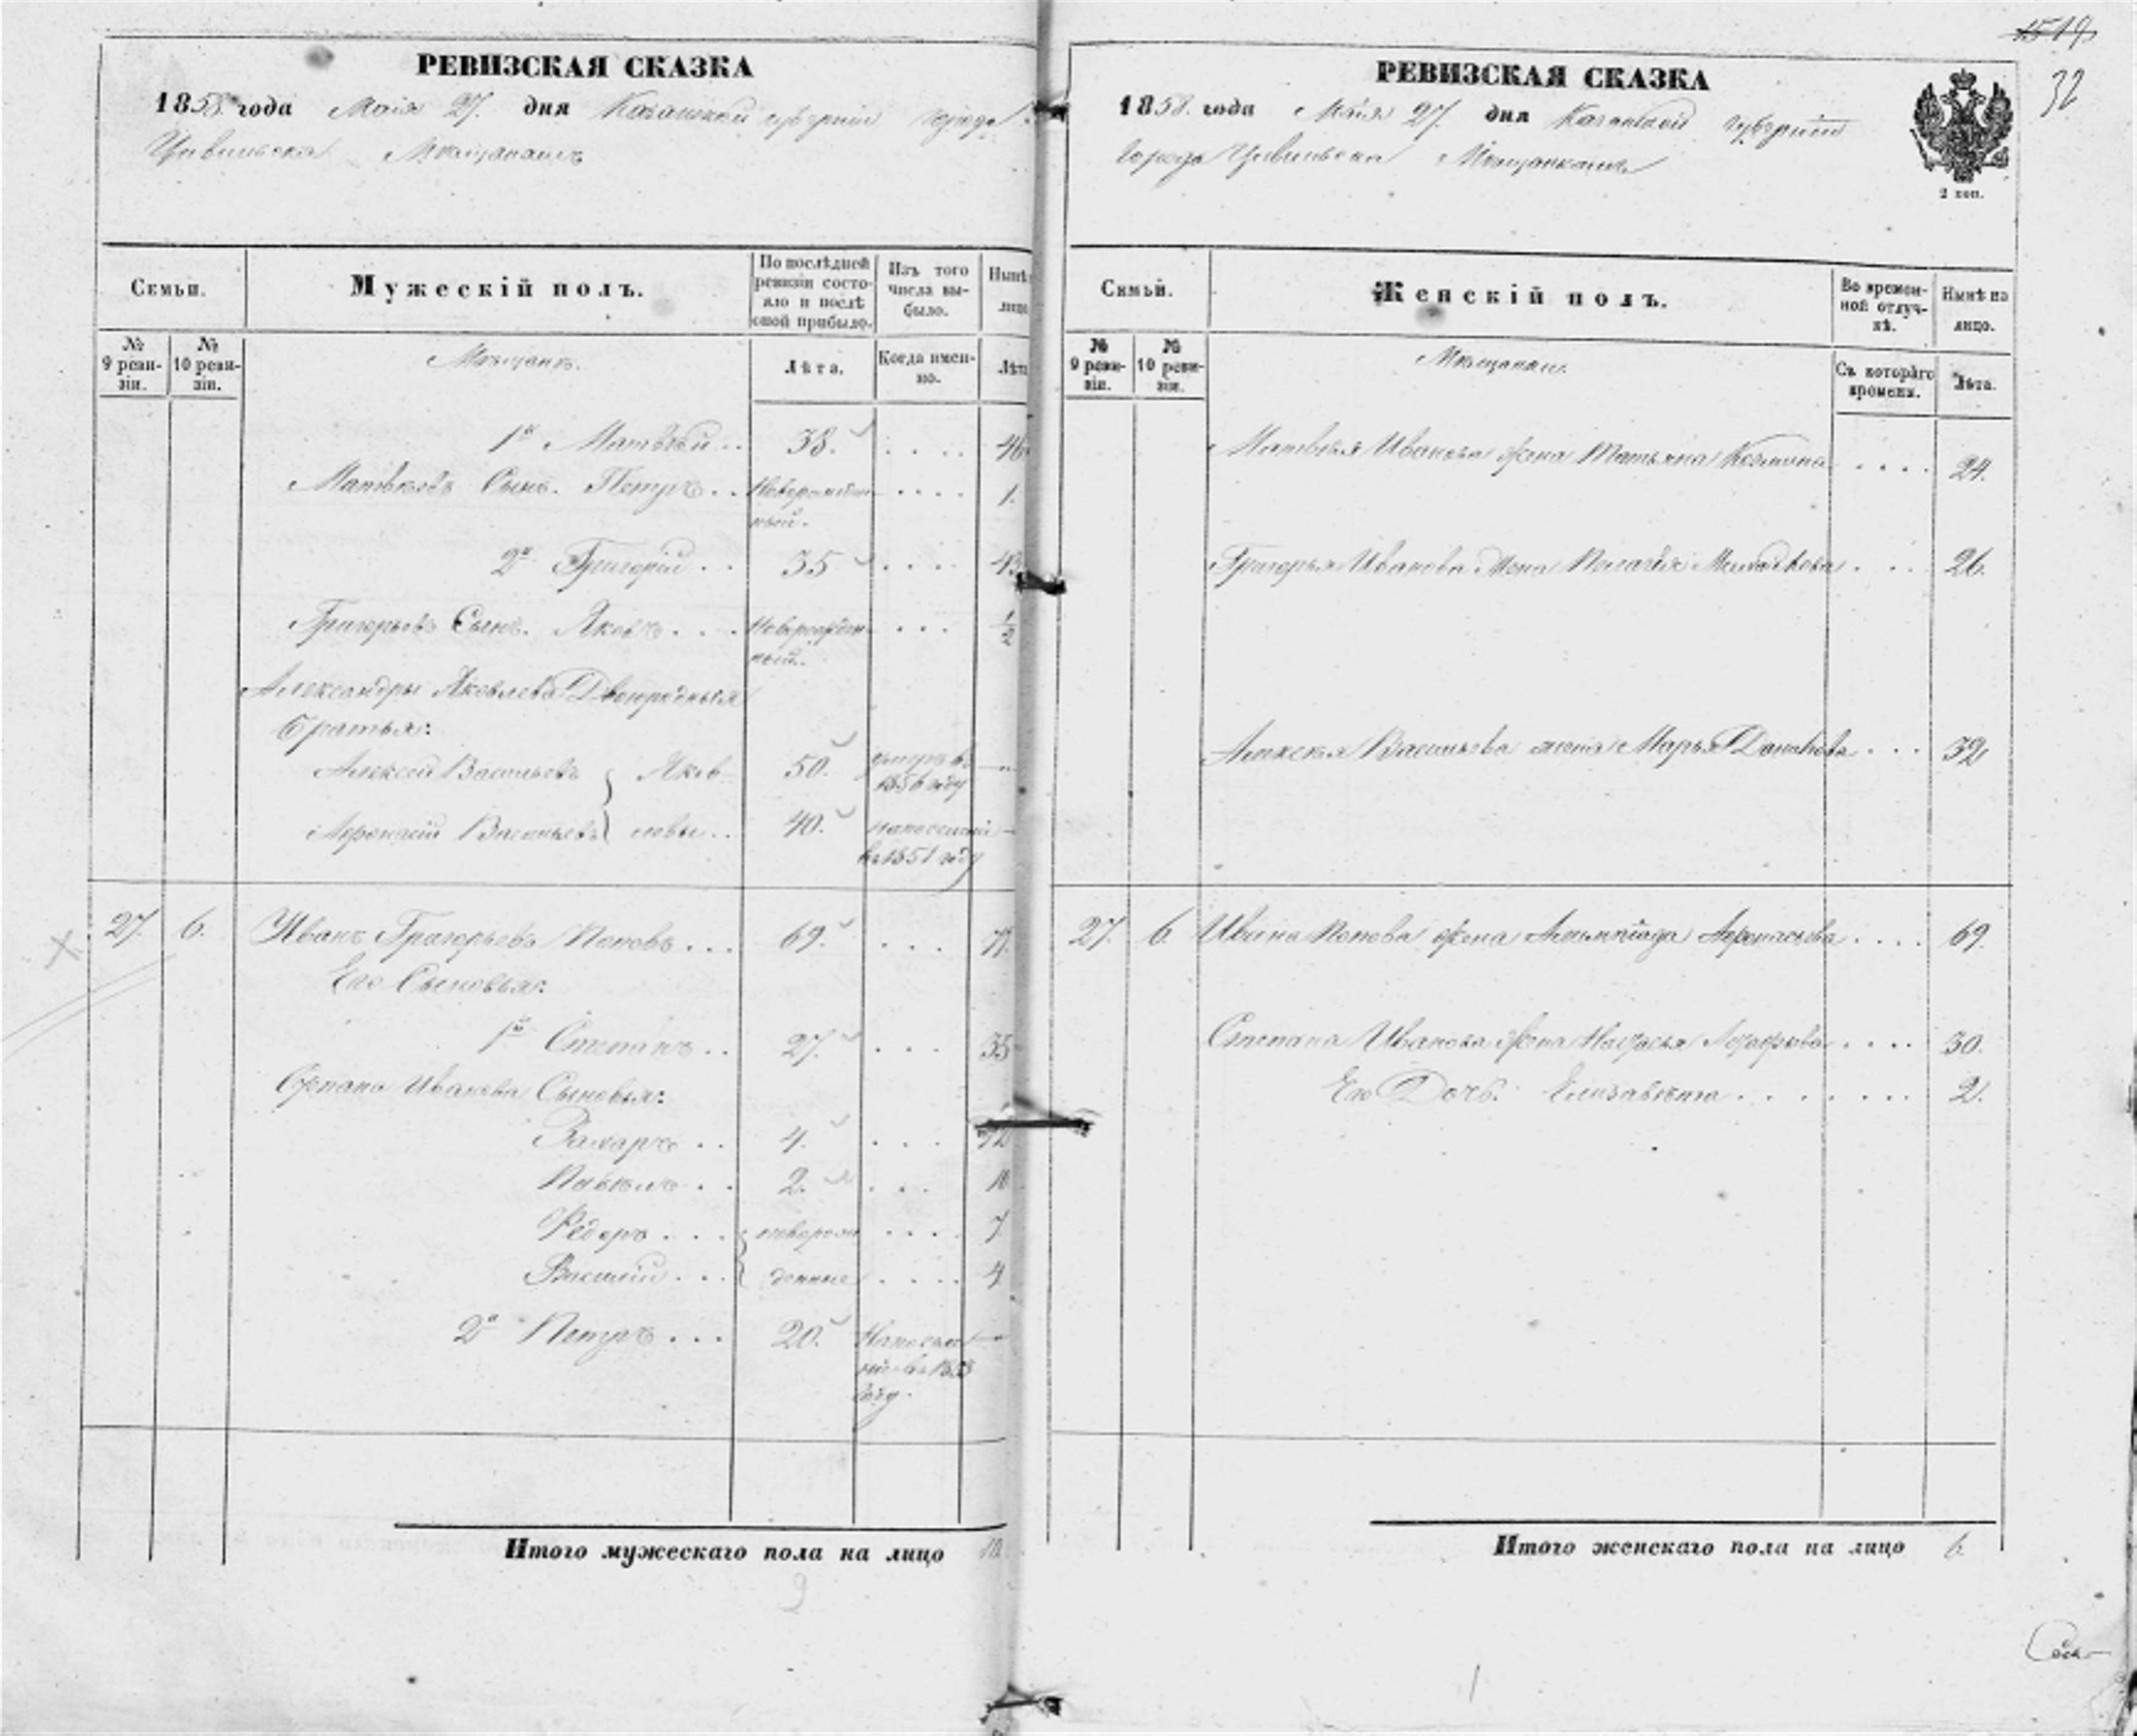 РЕВИЗСКАЯ СКАЗКА
1858 года Маія 27. дня Казанской губерніи города
Цивильска Мѣщанамъ
Семьи.
Мужескій полъ.
По послѣдней ревизіи состояло и послѣ оной прибыло.
Изъ того числа выбыло.
Нынѣ лицо
№ 9 ревизіи.
№ 10 ревизіи.
Мѣщане.
Лѣта.
Когда именно.
Лѣта
1й Матвѣй .. 38. .... 46
Матвѣевъ Сынъ. Петръ .. Новорожденный. .... 1.
2й Григорій .. 35 .... 43
Григорьевъ Сынъ. Яковъ ... Новорожденный. ... 1/2
Александры Яковлева Двоюродныя
братья:
Алексей Васильевъ } Яков 50. умеръ въ 1856 году
Афонасій Васильевъ } левы .. 40. въ 1851 году
27. 6. Иванъ Григорьевъ Поповъ ... 69. ... 77.
Его Сыновья:
1й Степанъ .. 27. ... 35
Степана Иванова Сыновья:
Захаръ .. 4. ... 12
Павелъ .. 2. ... 10
Федоръ ... } новорож .... 7
Василій ... } денные .... 4
2й Петръ ... 20. году.
Итого мужескаго пола на лицо 10.
9
1519
32
РЕВИЗСКАЯ СКАЗКА
1858. года Маія 27. дня Казанской губерніи
города Цивильска Мѣщанкамъ
2 коп.
Семьи.
Женскій полъ.
Во временной отлучкѣ.
Нынѣ на лицо.
№ 9 ревизіи.
№ 10 ревизіи.
Мѣщанки.
Съ котораго времени.
Лѣта.
Матвѣя Иванова жена Татьяна Козмина .... 24.
Григорья Иванова Жена Пелагѣя ... 26.
Алексѣя Васильева жена Марья ... 32
27. 6. Ивана Попова жена Алимпіада Афонасьева .... 69.
Степана Иванова жена Настасья .... 30.
Его Дочь: Елизавета ....... 2.
Итого женскаго пола на лицо 6.